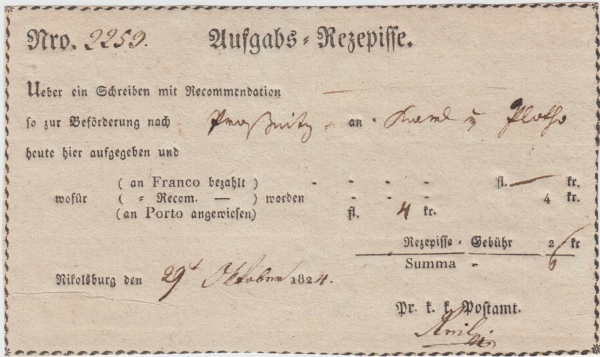 Nro. 2259. Aufgabs-Rezepisse.
Ueber ein Schreiben mit Recommendation —
so zur Beförderung nach Proßnitz an Karl v Plotho
heute hier aufgegeben und
(an Franco bezahlt) - - - - fl. — kr.
wofür (= Recom. —) worden - - - 4 kr.
(an Porto angewiesen) fl. 4 kr.
Rezepisse-Gebühr 2 kr
Summa - 6
Nikolsburg den 29t Oktober 1824.
Pr. k. k. Postamt.